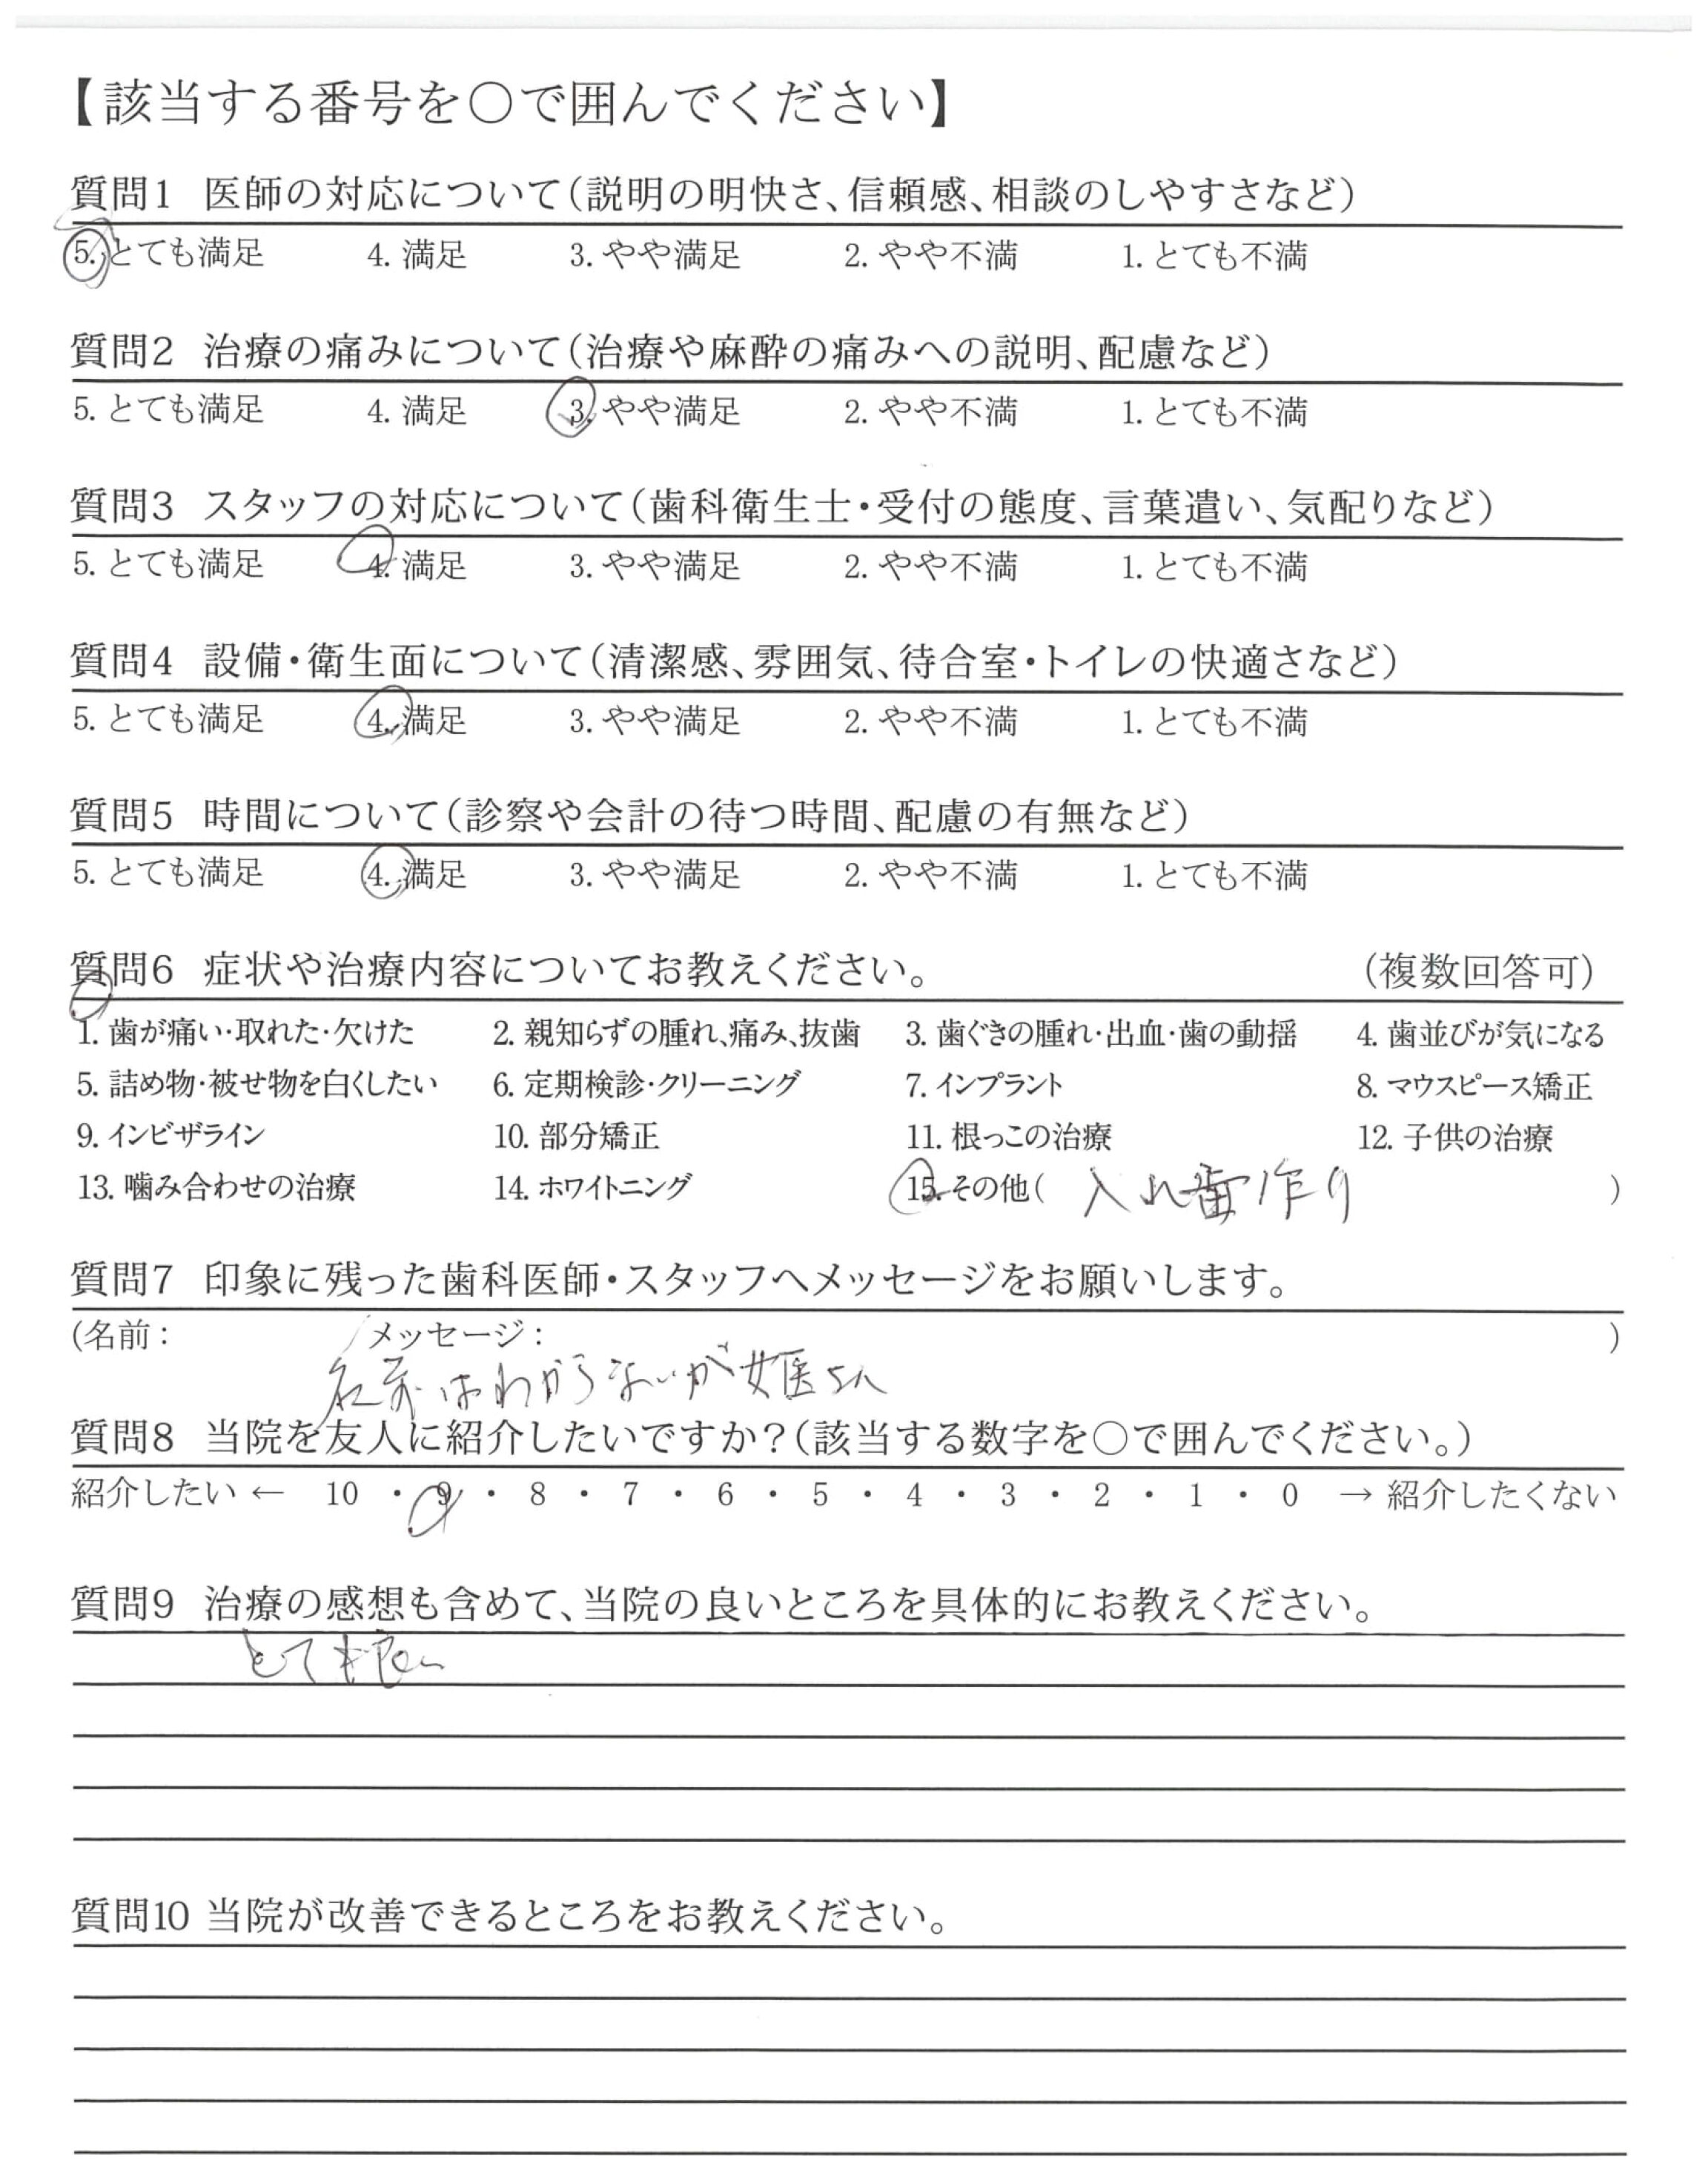 【該当する番号を○で囲んでください】
質問1 医師の対応について（説明の明快さ、信頼感、相談のしやすさなど）
5. とても満足 4. 満足 3. やや満足 2. やや不満 1. とても不満
質問2 治療の痛みについて（治療や麻酔の痛みへの説明、配慮など）
5. とても満足 4. 満足 3. やや満足 2. やや不満 1. とても不満
質問3 スタッフの対応について（歯科衛生士・受付の態度、言葉遣い、気配りなど）
5. とても満足 4. 満足 3. やや満足 2. やや不満 1. とても不満
質問4 設備・衛生面について（清潔感、雰囲気、待合室・トイレの快適さなど）
5. とても満足 4. 満足 3. やや満足 2. やや不満 1. とても不満
質問5 時間について（診察や会計の待つ時間、配慮の有無など）
5. とても満足 4. 満足 3. やや満足 2. やや不満 1. とても不満
質問6 症状や治療内容についてお教えください。 （複数回答可）
1. 歯が痛い・取れた・欠けた 2. 親知らずの腫れ、痛み、抜歯 3. 歯ぐきの腫れ・出血・歯の動揺 4. 歯並びが気になる
5. 詰め物・被せ物を白くしたい 6. 定期検診・クリーニング 7. インプラント 8. マウスピース矯正
9. インビザライン 10. 部分矯正 11. 根っこの治療 12. 子供の治療
13. 噛み合わせの治療 14. ホワイトニング 15. その他( 入れ歯作り )
質問7 印象に残った歯科医師・スタッフへメッセージをお願いします。
(名前： メッセージ： )
名前はわからないが女医さん
質問8 当院を友人に紹介したいですか？（該当する数字を○で囲んでください。）
紹介したい ← 10 ・ 9 ・ 8 ・ 7 ・ 6 ・ 5 ・ 4 ・ 3 ・ 2 ・ 1 ・ 0 → 紹介したくない
質問9 治療の感想も含めて、当院の良いところを具体的にお教えください。
とても良い
質問10 当院が改善できるところをお教えください。